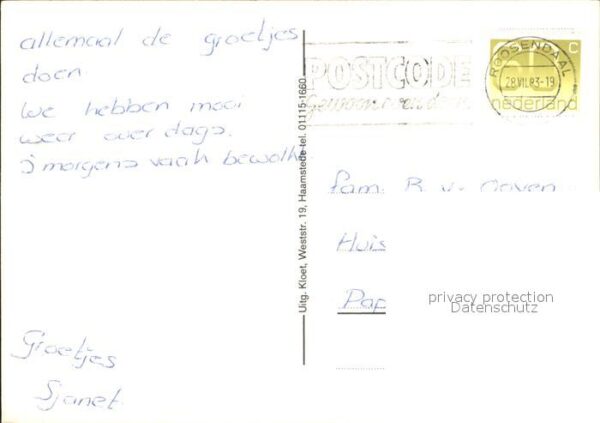 allemaal de groetjes
doen
We hebben mooi
weer overdags.
's morgens vaak bewolkt.
Groetjes
Sjanet.
Uitg. Kloet, Weststr. 19, Haamstede tel. 01115-1660
POSTCODE
Gewoon
ROOSENDAAL
28.VII.83-19
C
nederland
fam. R. v.
Huis
Pap
privacy protection
Datenschutz